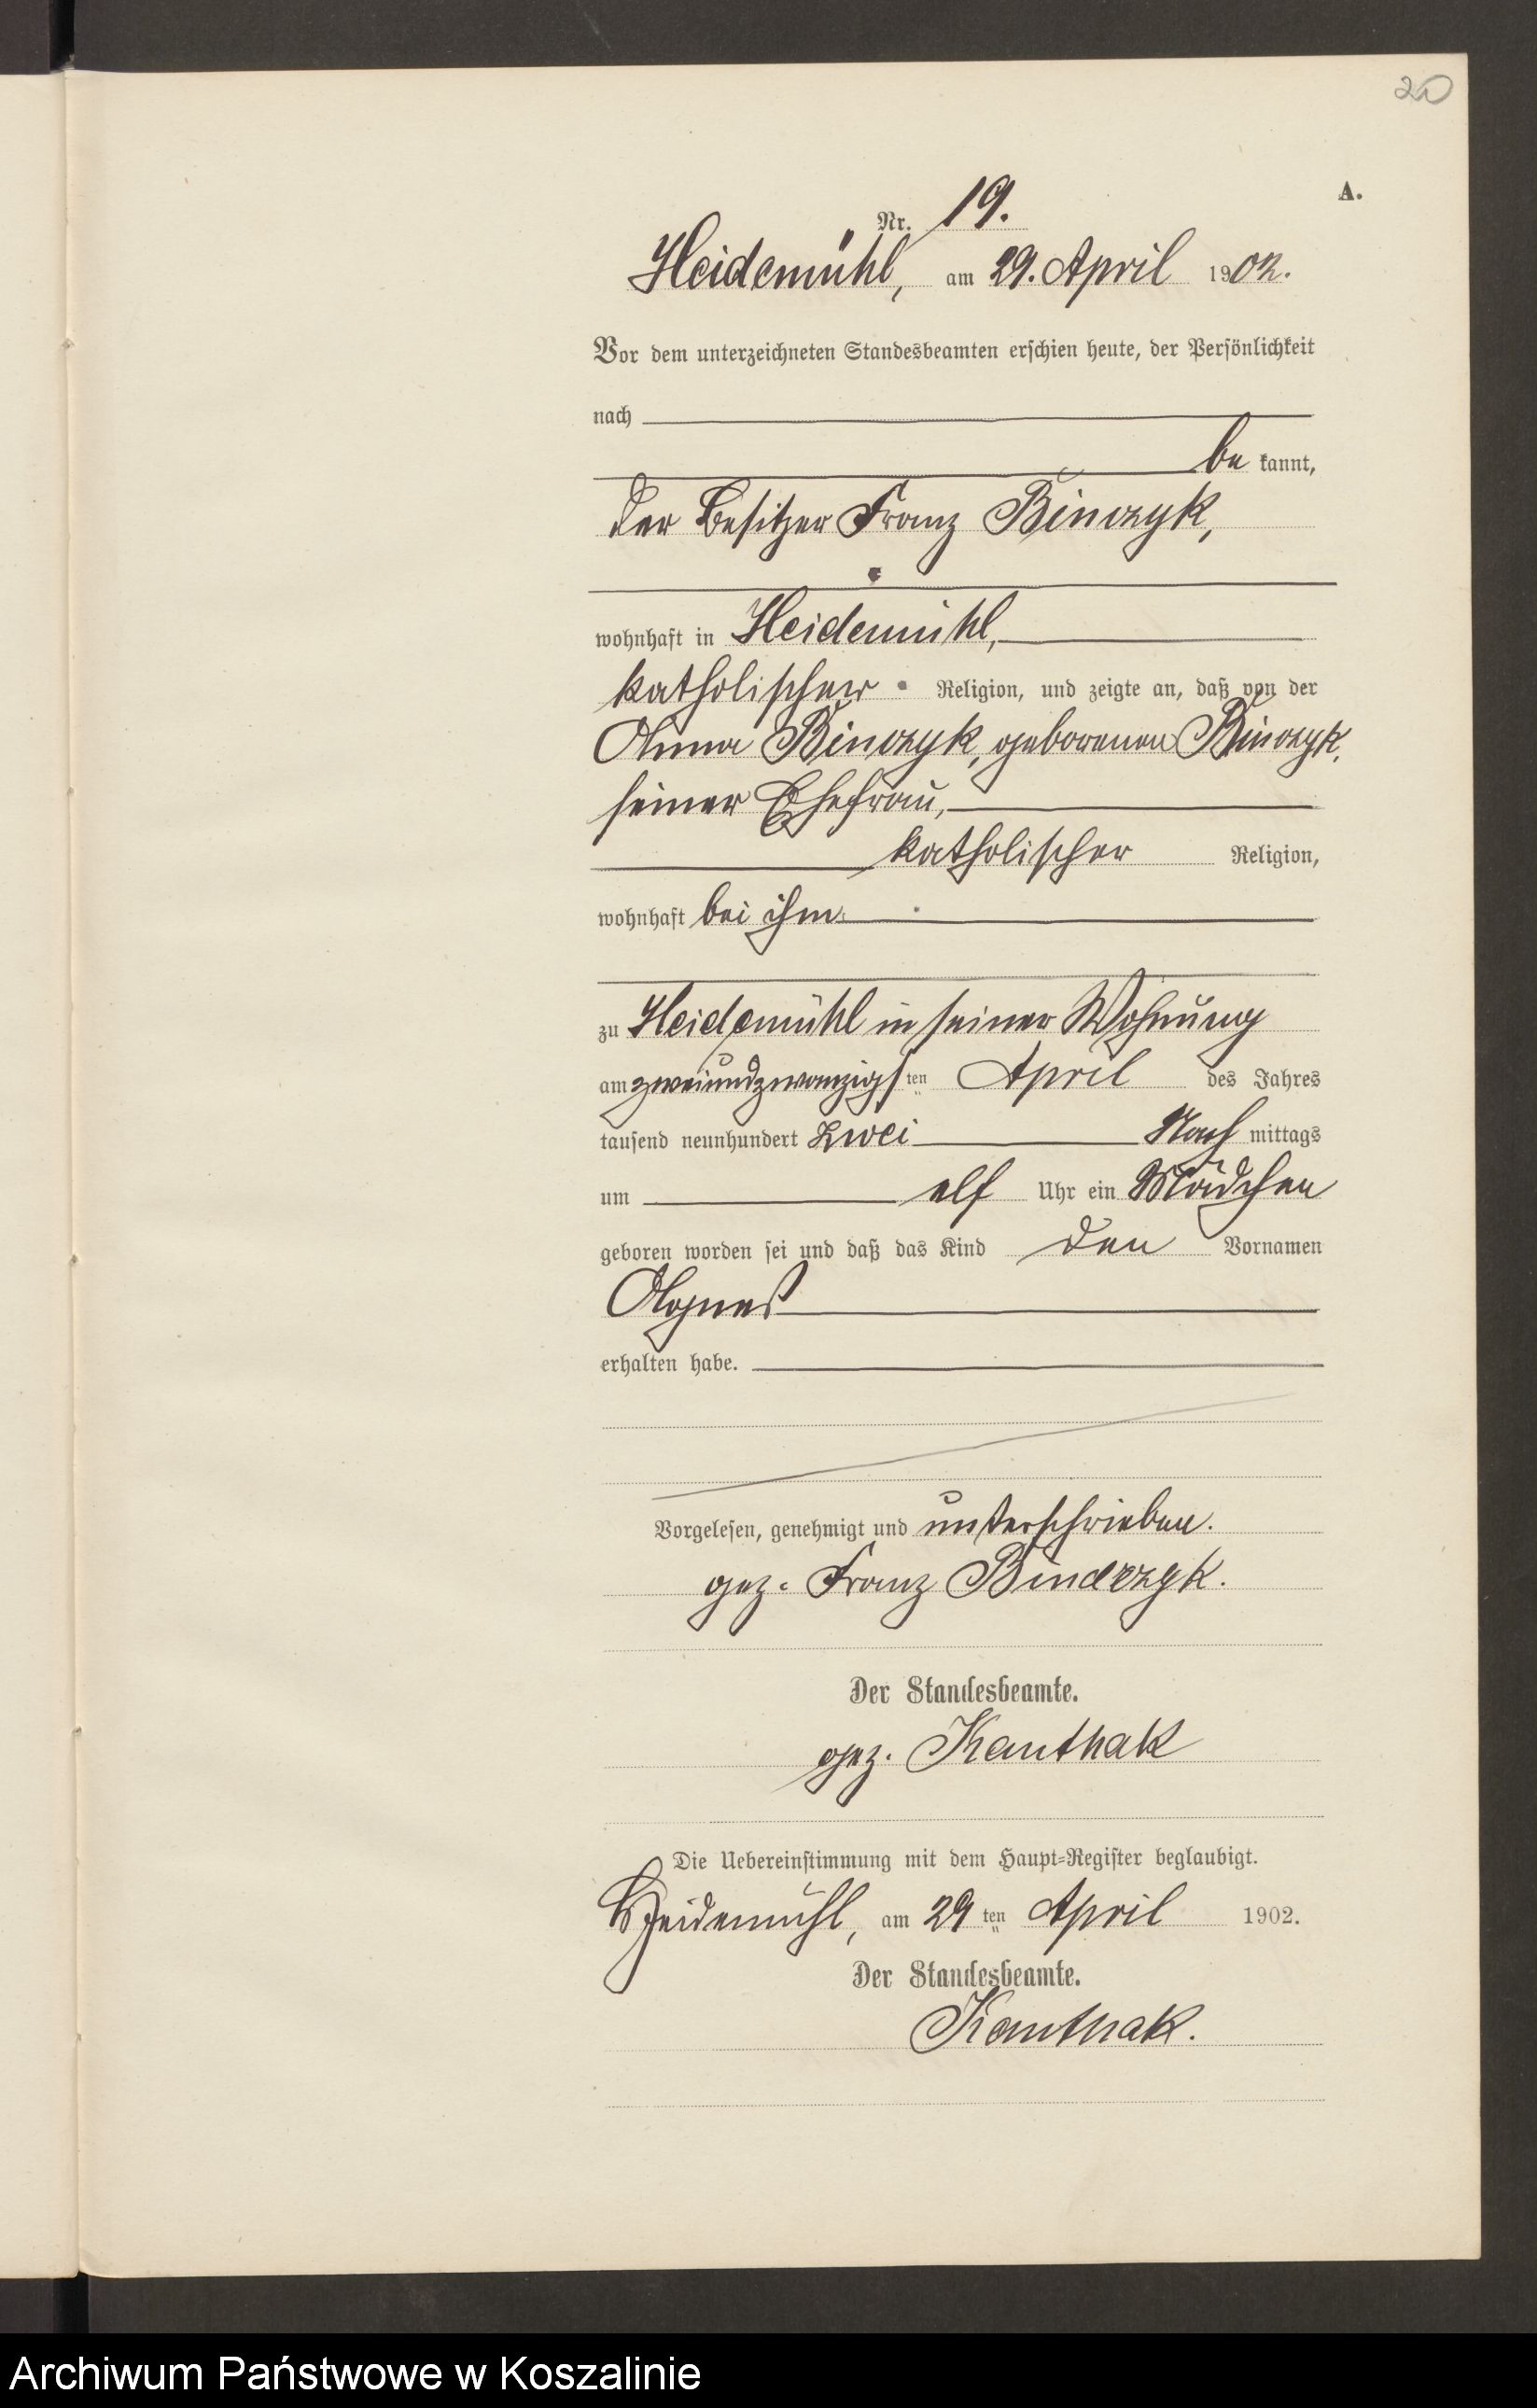 20
A.
Nr. 19.
Heidemühl, am 29. April 1902.
Vor dem unterzeichneten Standesbeamten erschien heute, der Persönlichkeit
nach
be kannt,
der Besitzer Franz Binczyk,
wohnhaft in Heidemühl,
katholischer Religion, und zeigte an, daß von der
Anna Binczyk, geborenen Binczyk,
seiner Ehefrau,
katholischer Religion,
wohnhaft bei ihm
zu Heidemühl in seiner Wohnung
am zweiundzwanzigsten April des Jahres
tausend neunhundert zwei Nach mittags
um elf Uhr ein Mädchen
geboren worden sei und daß das Kind den Vornamen
Agnes
erhalten habe.
Vorgelesen, genehmigt und unterschrieben.
gez. Franz Binderzyk.
Der Standesbeamte.
gez. Kanthak
Die Uebereinstimmung mit dem Haupt-Register beglaubigt.
Heidemühl, am 29 ten April 1902.
Der Standesbeamte.
Kanthak.
Archiwum Państwowe w Koszalinie